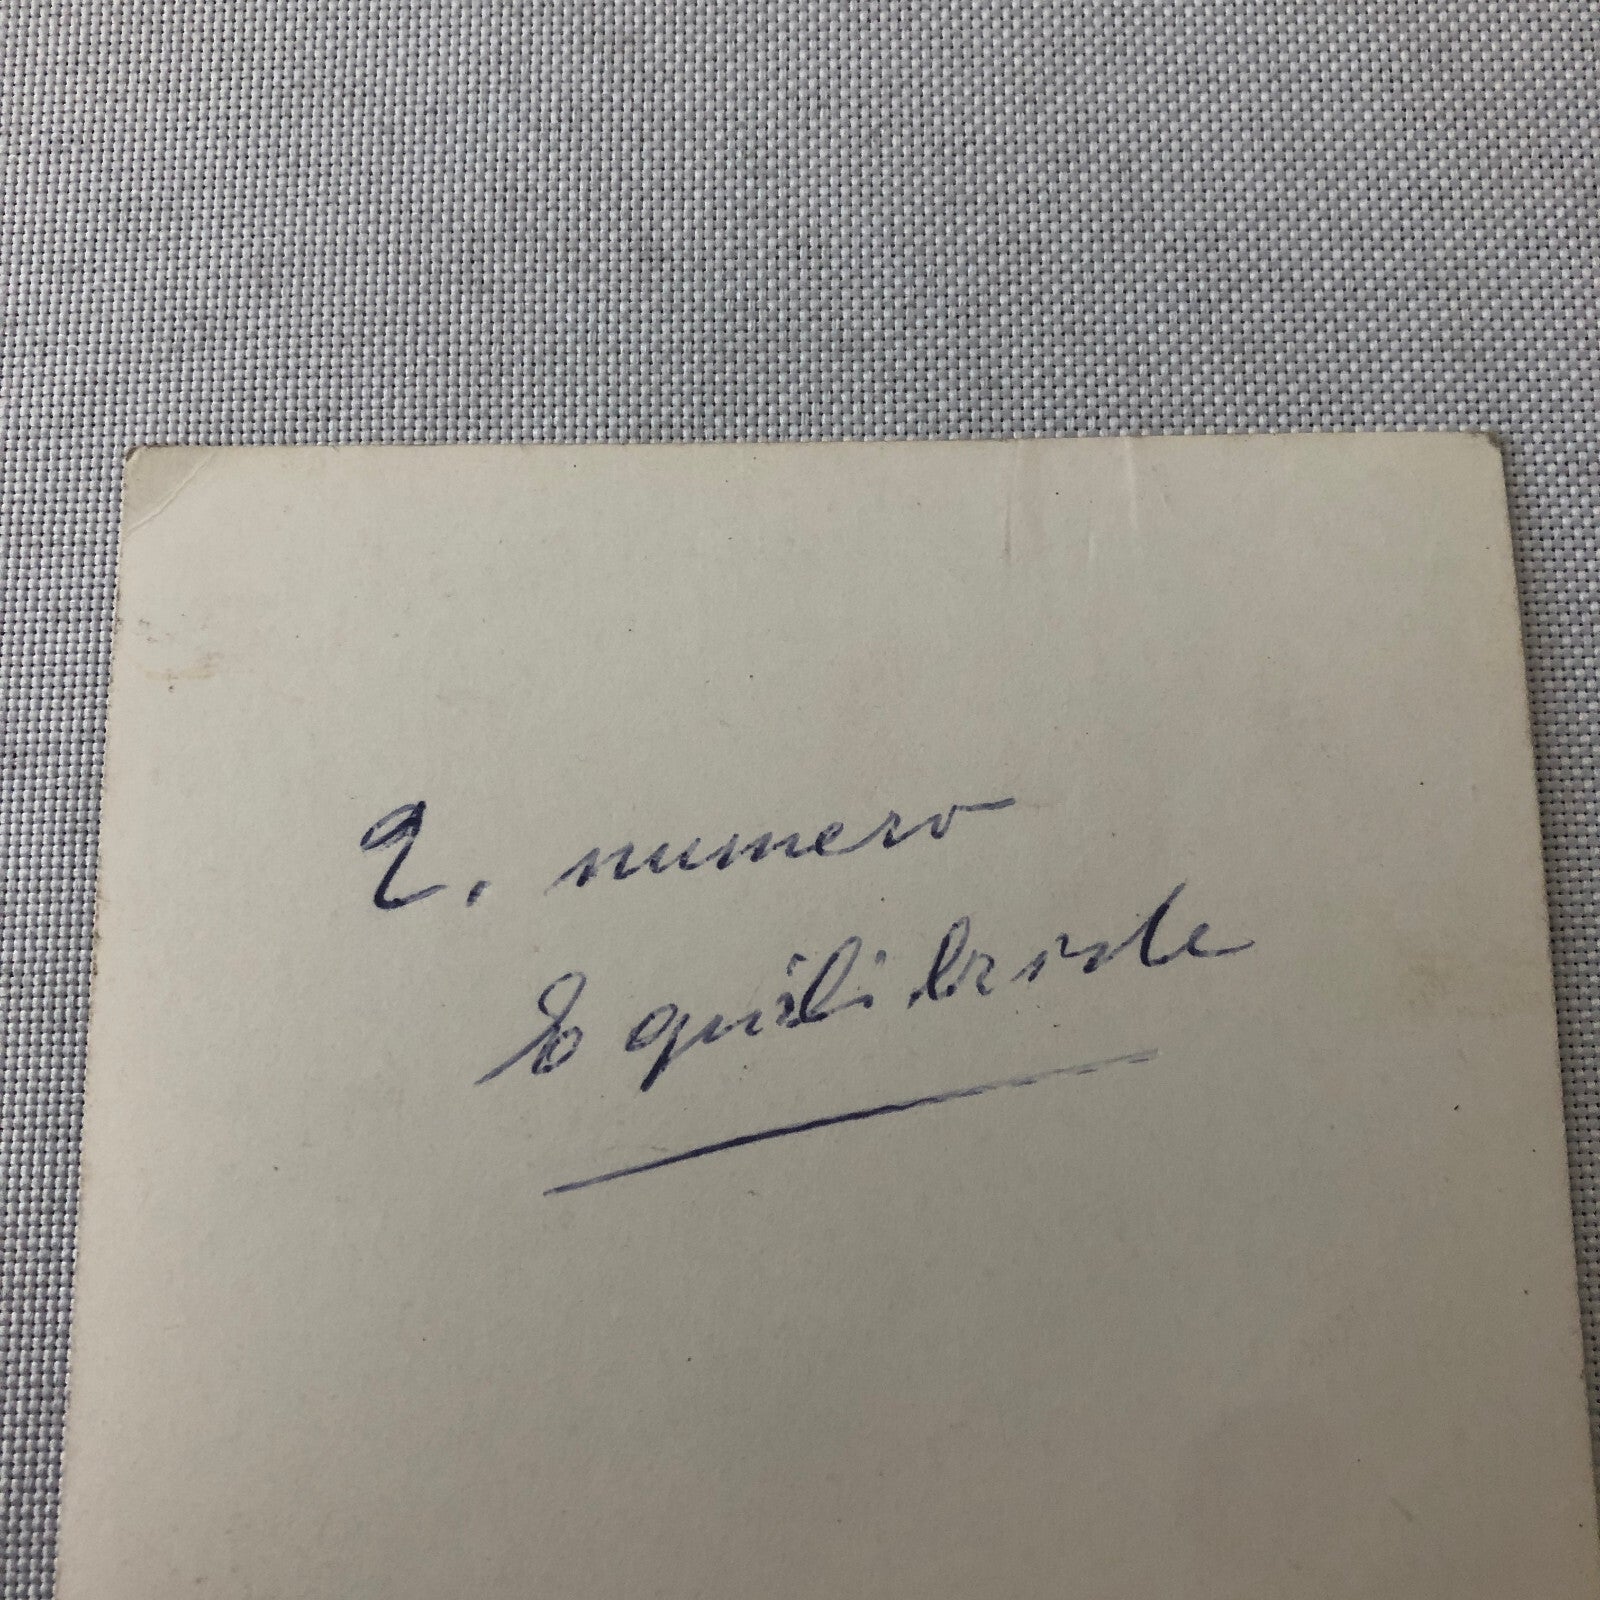 2. numero
Equilibriste